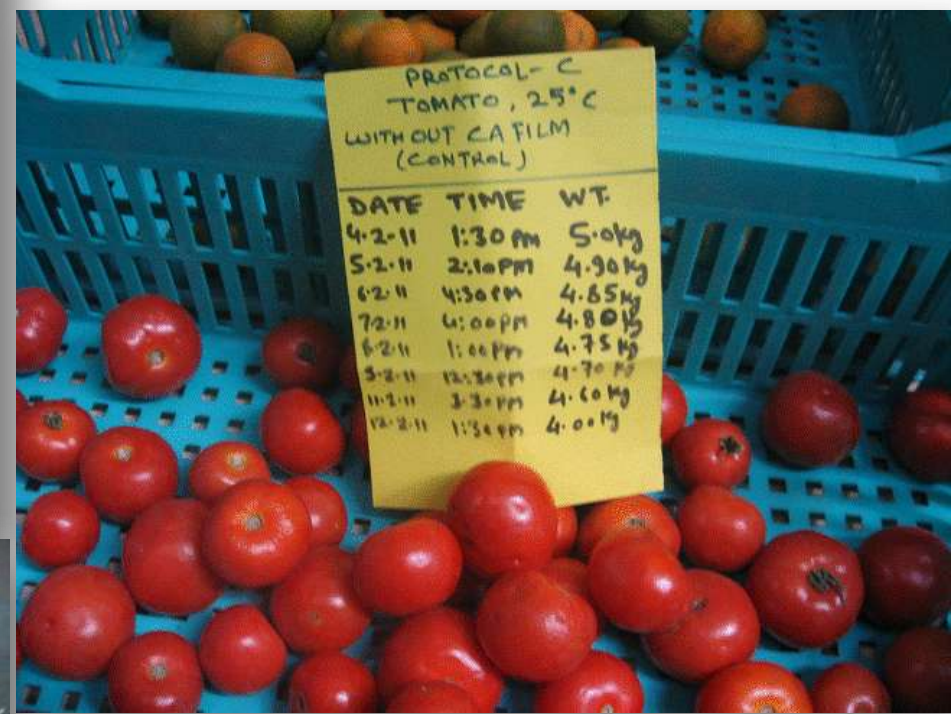 PROTOCOL - C
TOMATO, 25°C
WITHOUT CA FILM
(CONTROL)
DATE TIME WT.
4.2.11 1:30 PM 5.0kg
5.2.11 2:10PM 4.90kg
6.2.11 4:30PM 4.85kg
7.2.11 4:00PM 4.80kg
8.2.11 1:00PM 4.75kg
9.2.11 12:30PM 4.70kg
11.2.11 3:30PM 4.60kg
12.2.11 1:30PM 4.00kg